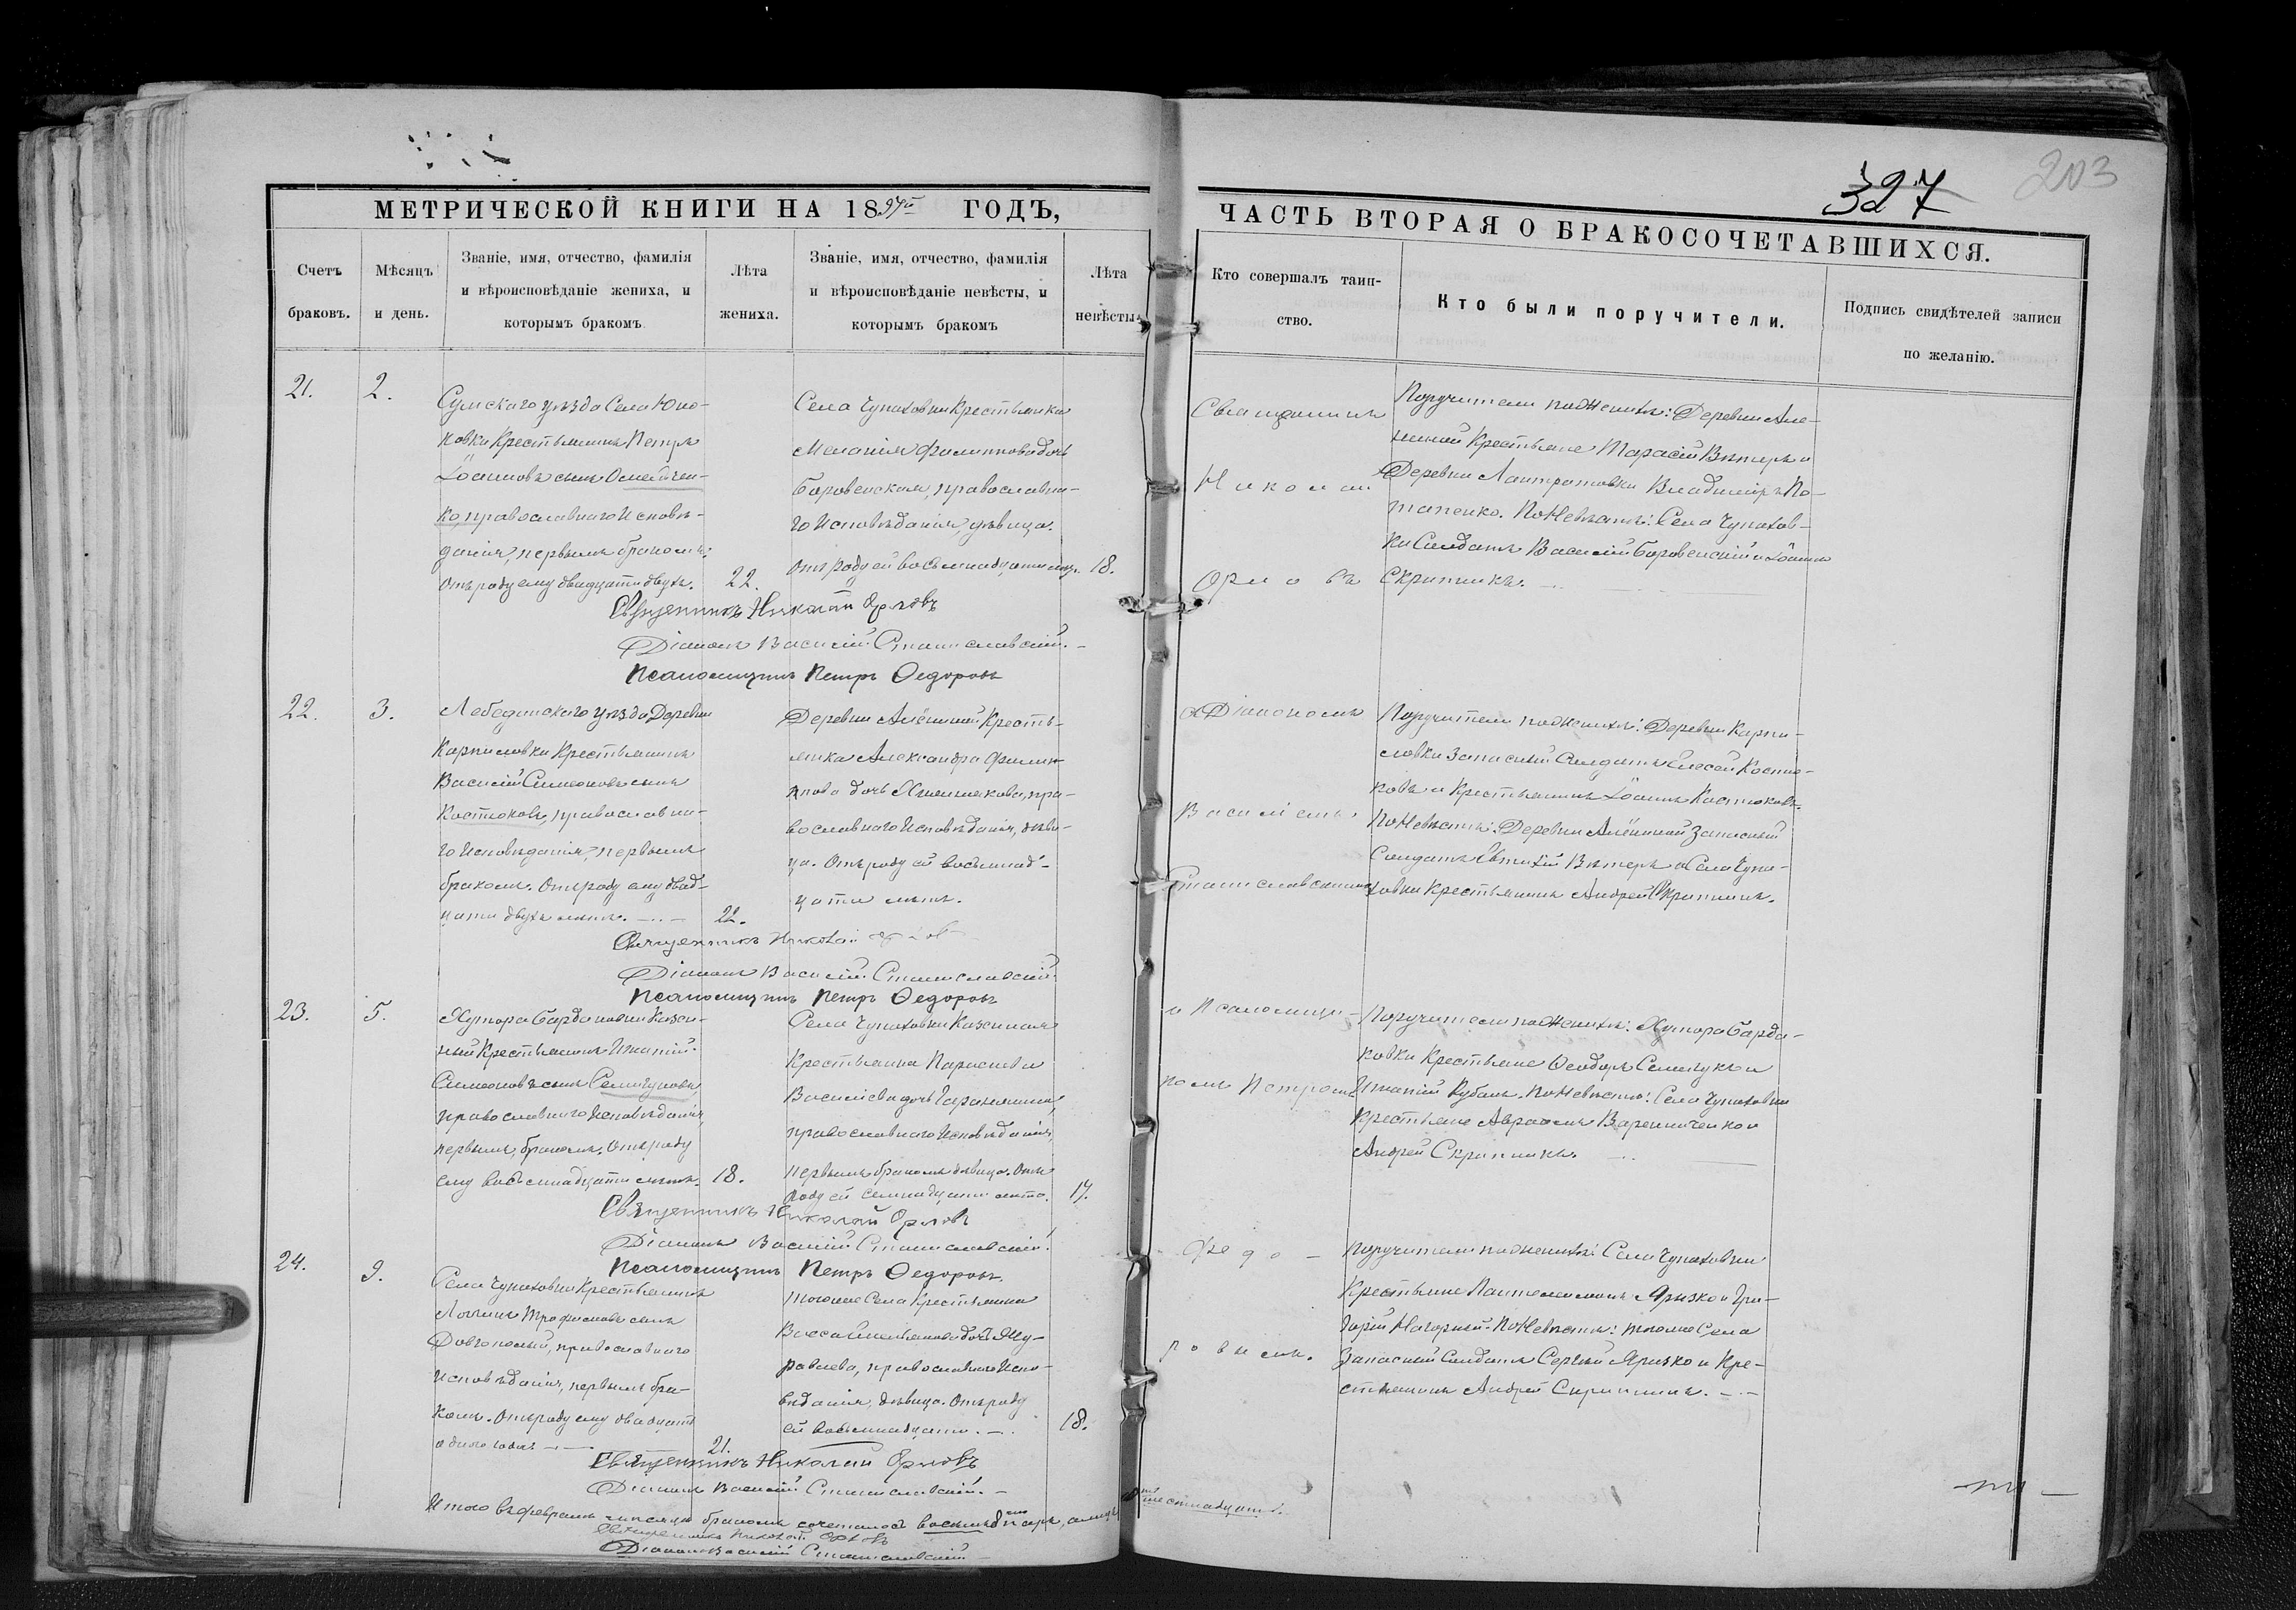 327
203
МЕТРИЧЕСКОЙ КНИГИ НА 1894й ГОДЪ,
ЧАСТЬ ВТОРАЯ О БРАКОСОЧЕТАВШИХСЯ.
Счетъ браковъ.
Мѣсяцъ и день.
Званіе, имя, отчество, фамилія
и вѣроисповѣданіе жениха, и
которымъ бракомъ
Лѣта
жениха.
Званіе, имя, отчество, фамилія
и вѣроисповѣданіе невѣсты, и
которымъ бракомъ
Лѣта
невѣсты.
Кто совершалъ таин-
ство.
Кто были поручители.
Подпись свидѣтелей записи
по желанію.
21.
2.
Сумскаго уѣзда Села Юна-
ковки Крестьянинъ Петръ
Іоанновъ сынъ Омельчен-
ко, православнаго Исповѣ-
данія, первымъ бракомъ.
Отъ роду ему двадцати двухъ.
22.
Села Чупаховки Крестьянка
Меланія Филиппова дочь
Боровенская, православна-
го Исповѣданія, дѣвица.
Отъ роду ей восемнадцати
18.
Священникъ
Николай
Орловъ
Поручители по Женихѣ: Деревни Але-
шиной Крестьяне Тарасій Вѣтеръ и
Деревни Лантратовки Владиміръ По-
тапенко. По Невѣстѣ: Села Чупахов-
ки Солдатъ Василій Боровенскій и Іоаннъ
Скрипникъ.
Священникъ Николай Орловъ
Діаконъ Василій Станиславскій.
Псаломщикъ Петръ Ѳедоровъ
22.
3.
Лебединскаго уѣзда Деревни
Карпиловки Крестьянинъ
Василій Симеоновъ сынъ
Костюковъ, православна-
го Исповѣданія, первымъ
бракомъ. Отъ роду ему двад-
цати двухъ лѣтъ.
22.
Деревни Алёшиной Кресть-
янка Александра Филип-
пова дочь, пра-
вославнаго Исповѣданія, дѣви-
ца. Отъ роду ей восемнад-
цати лѣтъ.
съ Діакономъ
Василіемъ
Станиславскимъ
Поручители по Женихѣ: Деревни Карпи-
ловки Запасный Солдатъ Костю-
ковъ и Крестьянинъ Іоаннъ Костюковъ.
По Невѣстѣ: Деревни Алёшиной Запасный
Солдатъ Евтихій Вѣтеръ и Села Чупа-
ховки Крестьянинъ Андрей Скрипникъ.
Священникъ Николай Орловъ
Діаконъ Василій Станиславскій
Псаломщикъ Петръ Ѳедоровъ
23.
5.
Хутора Бардаковки Казен-
ный Крестьянинъ Игнатій
Симеоновъ сынъ
православнаго Исповѣданія,
первымъ бракомъ. Отъ роду
ему восемнадцати лѣтъ.
18.
Села Чупаховки Казенная
Крестьянка Параскева
Васильева дочь
православнаго Исповѣданія,
первымъ бракомъ дѣвица. Отъ
роду ей семнадцати лѣтъ.
17.
и Псаломщи-
комъ Петромъ
Поручители по Женихѣ: Хутора Барда-
ковки Крестьяне Ѳеодоръ и
Игнатій Кубакъ. По Невѣстѣ: Села Чупаховки
Крестьяне Авраамъ Варениченко и
Андрей Скрипникъ.
Священникъ Николай Орловъ
Діаконъ Василій Станиславскій.
Псаломщикъ Петръ Ѳедоровъ.
24.
9.
Села Чупаховки Крестьянинъ
Логгинъ Трофимовъ сынъ
Довгополый, православнаго
Исповѣданія, первымъ бра-
комъ. Отъ роду ему двадцати
одного года.
21.
Того же Села Крестьянка
Васса дочь Жу-
равлева, православнаго Испо-
вѣданія, дѣвица. Отъ роду
ей восемнадцати.
18.
Ѳедо-
ровымъ.
Поручители по Женихѣ: Села Чупаховки
Крестьяне Пантелеимонъ Яризко и Гри-
горій Нагорный. По Невѣстѣ: того же Села
Запасный Солдатъ Сергѣй Яризко и Кре-
стьянинъ Андрей Скрипникъ.
Священникъ Николай Орловъ
Діаконъ Василій Станиславскій.
Итого въ февралѣ мѣсяцѣ бракомъ сочеталось восемь паръ, а лицъ
шестнадцать.
Священникъ Николай Орловъ
Діаконъ Василій Станиславскій